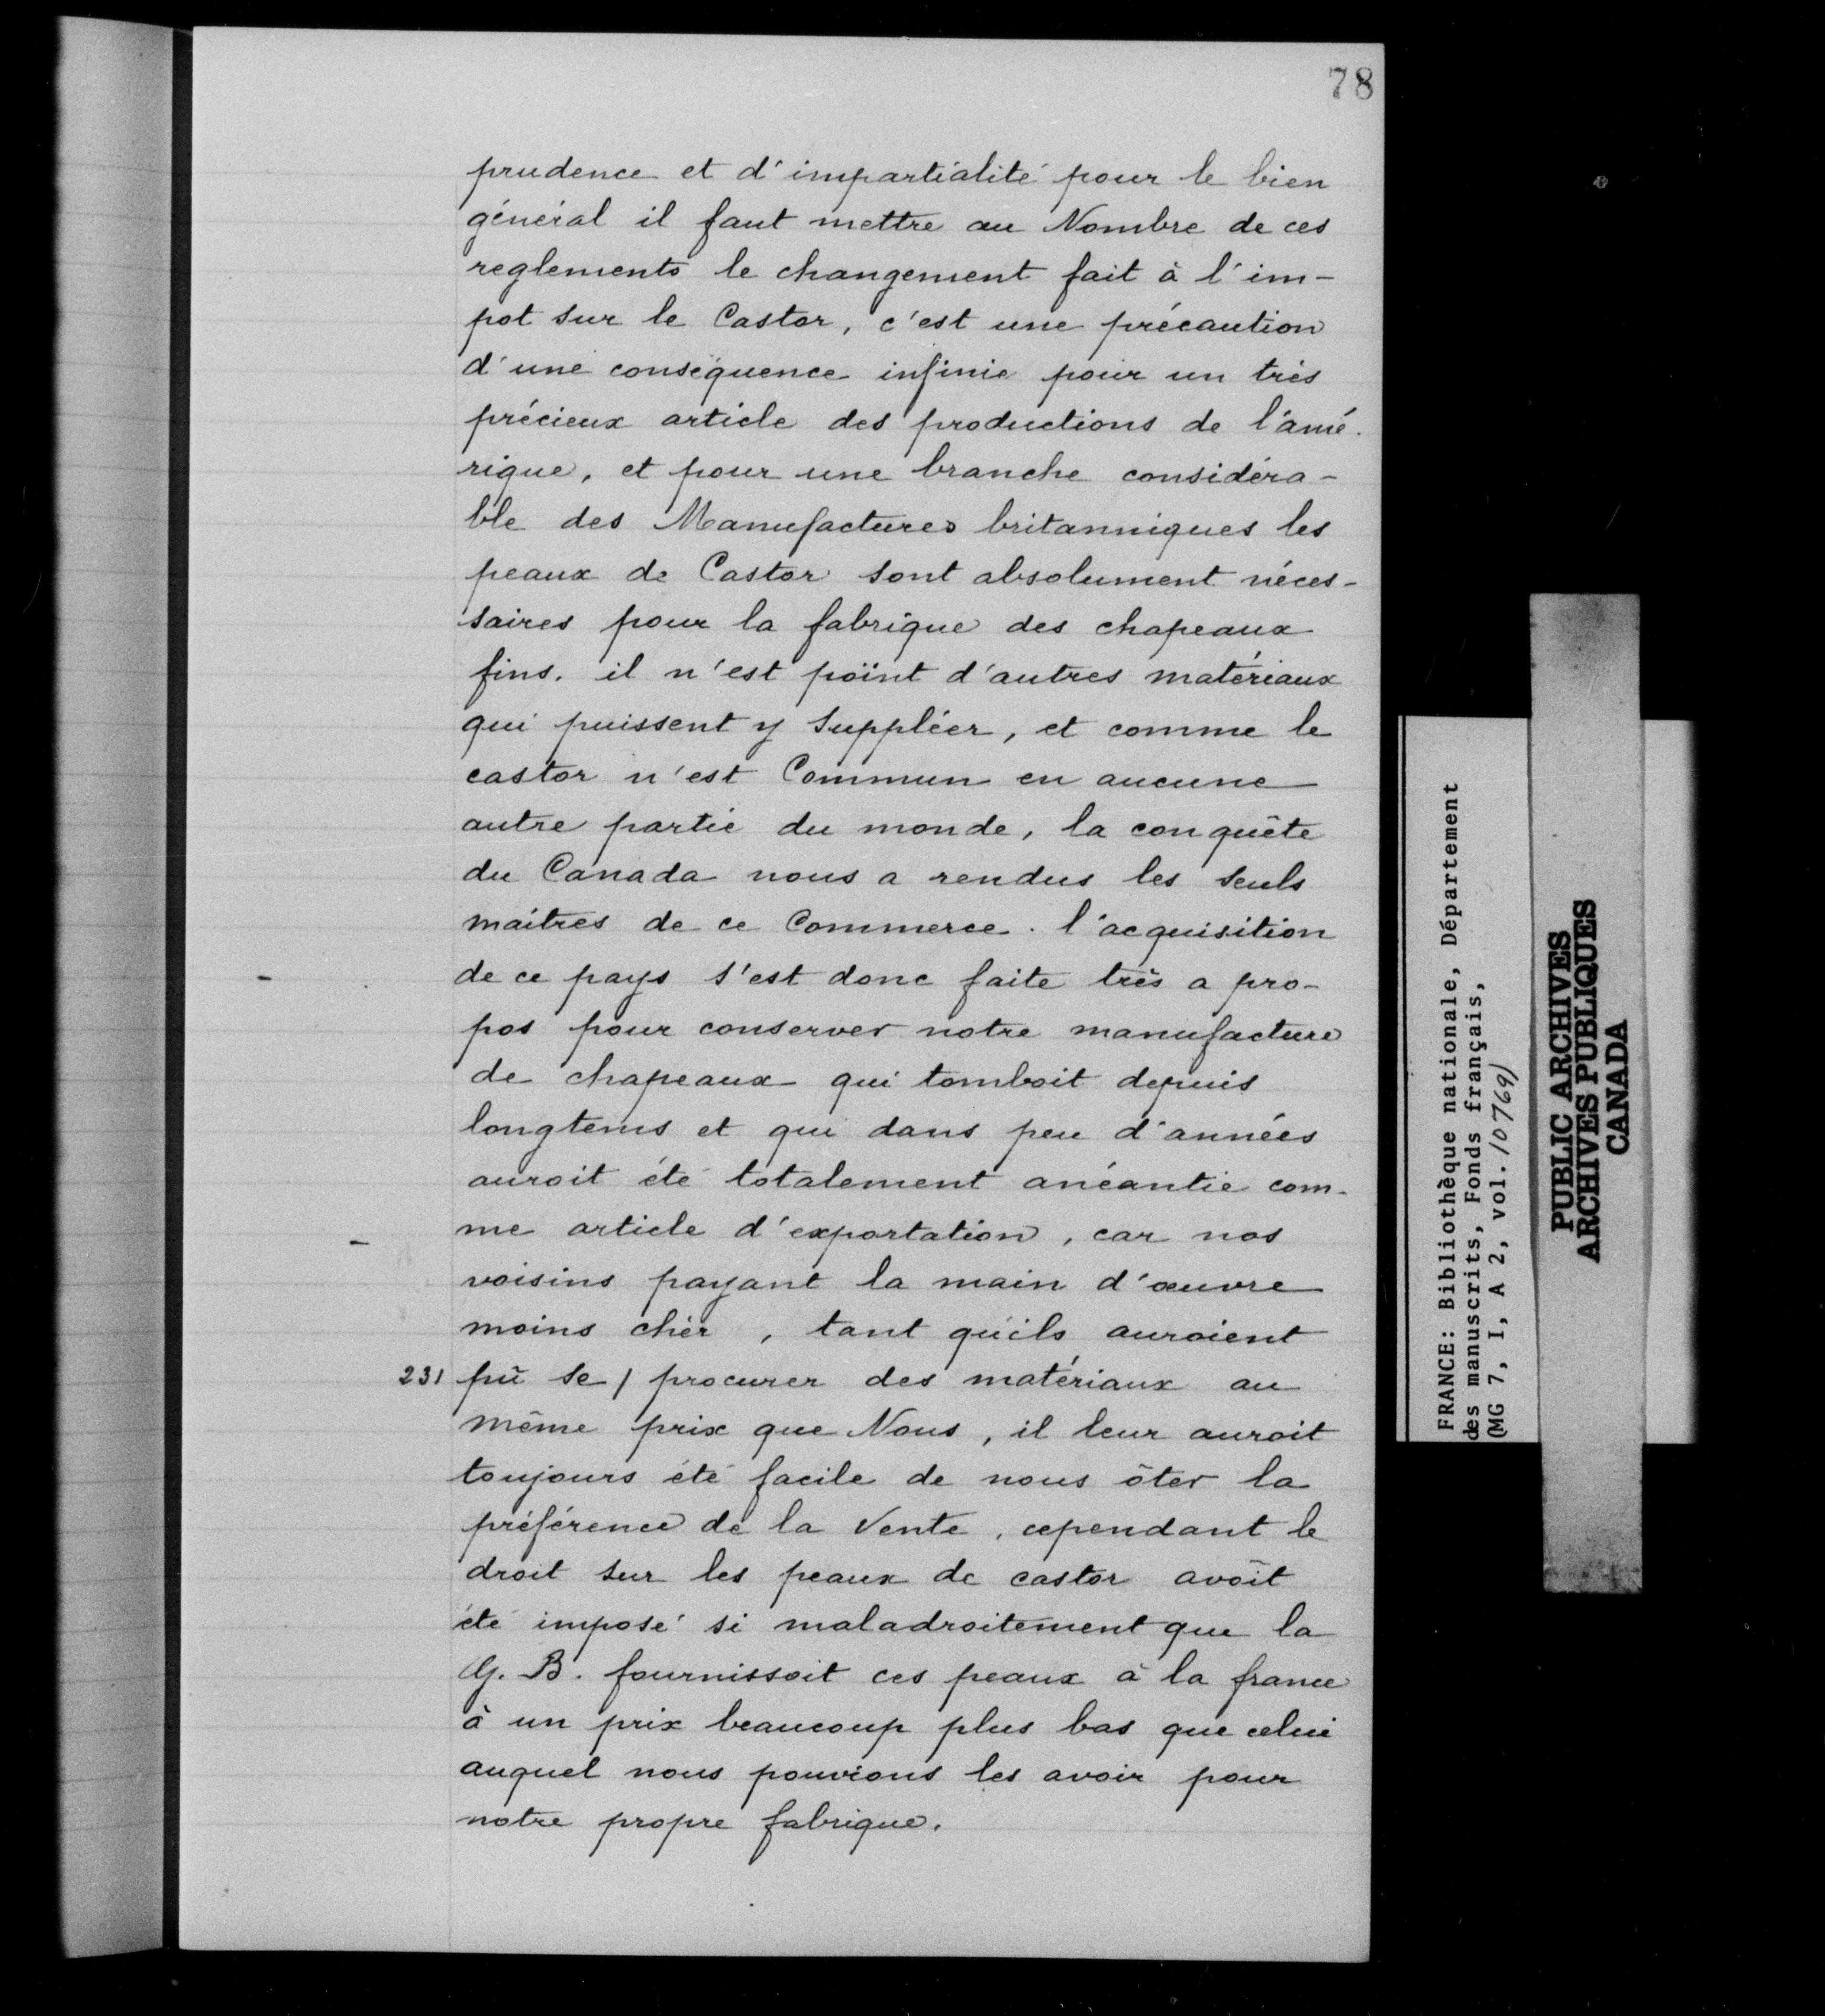 78
prudence et d'impartialité pour le bien
général il faut mettre au Nombre de ces
reglements le changement fait à l'im-
pot sur le Castor, c'est une précaution
d'une conséquence infinie pour un très
précieux article des productions de l'amé-
rique, et pour une branche considéra-
ble des Manufactures britanniques les
peaux de Castor sont absolument néces-
saires pour la fabrique des chapeaux
fins. il n'est point d'autres matériaux
qui puissent y Suppléer, et comme le
castor n'est Commun en aucune
autre partie du monde, la conquête
du Canada nous a rendus les Seuls
maitres de ce Commerce. l'acquisition
de ce pays s'est donc faite très a pro-
pos pour conserver notre manufacture
de chapeaux qui tomboit depuis
longtems et qui dans peu d'années
auroit été totalement anéantie com-
me article d'exportation, car nos
voisins payant la main d'œuvre
moins chèr, tant qu'ils auroient
231 pû se / procurer des matériaux au
même prix que Nous, il leur auroit
toujours été facile de nous ôter la
préférence de la Vente, cependant le
droit sur les peaux de castor avoit
été imposé si maladroitement que la
G. B. fournissoit ces peaux à la france
à un prix beaucoup plus bas que celui
auquel nous pouvions les avoir pour
notre propre fabrique.
FRANCE: Bibliothèque nationale, Département
des manuscrits, Fonds français,
(MG 7, I, A 2, vol. 10769)
PUBLIC ARCHIVES
ARCHIVES PUBLIQUES
CANADA